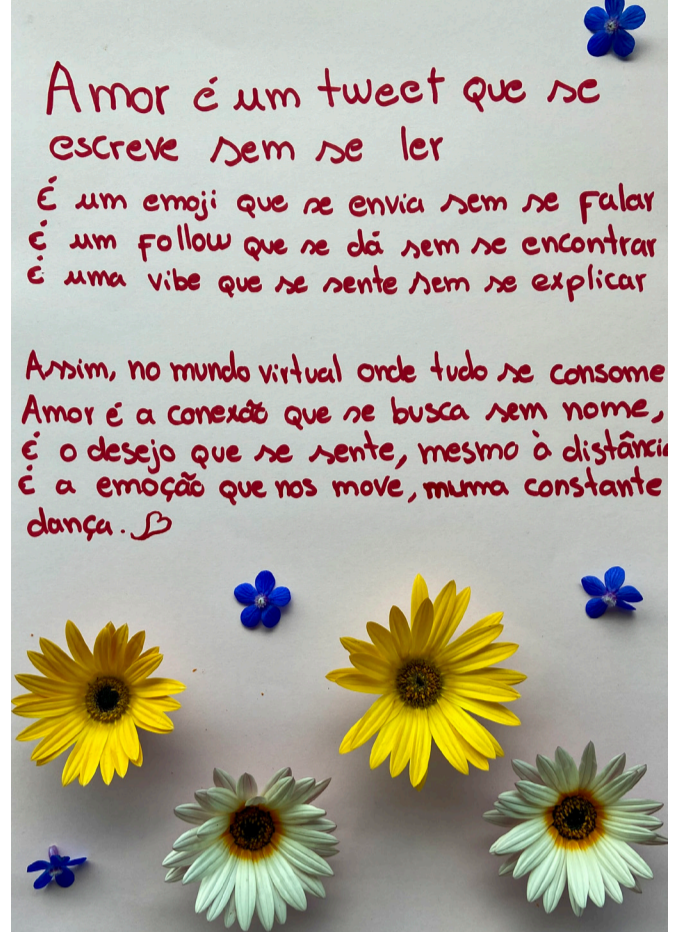 Amor é um tweet que se
escreve sem se ler
É um emoji que se envia sem se falar
É um follow que se dá sem se encontrar
É uma vibe que se sente sem se explicar
Assim, no mundo virtual onde tudo se consome
Amor é a conexão que se busca sem nome,
É o desejo que se sente, mesmo à distância
É a emoção que nos move, numa constante
dança.